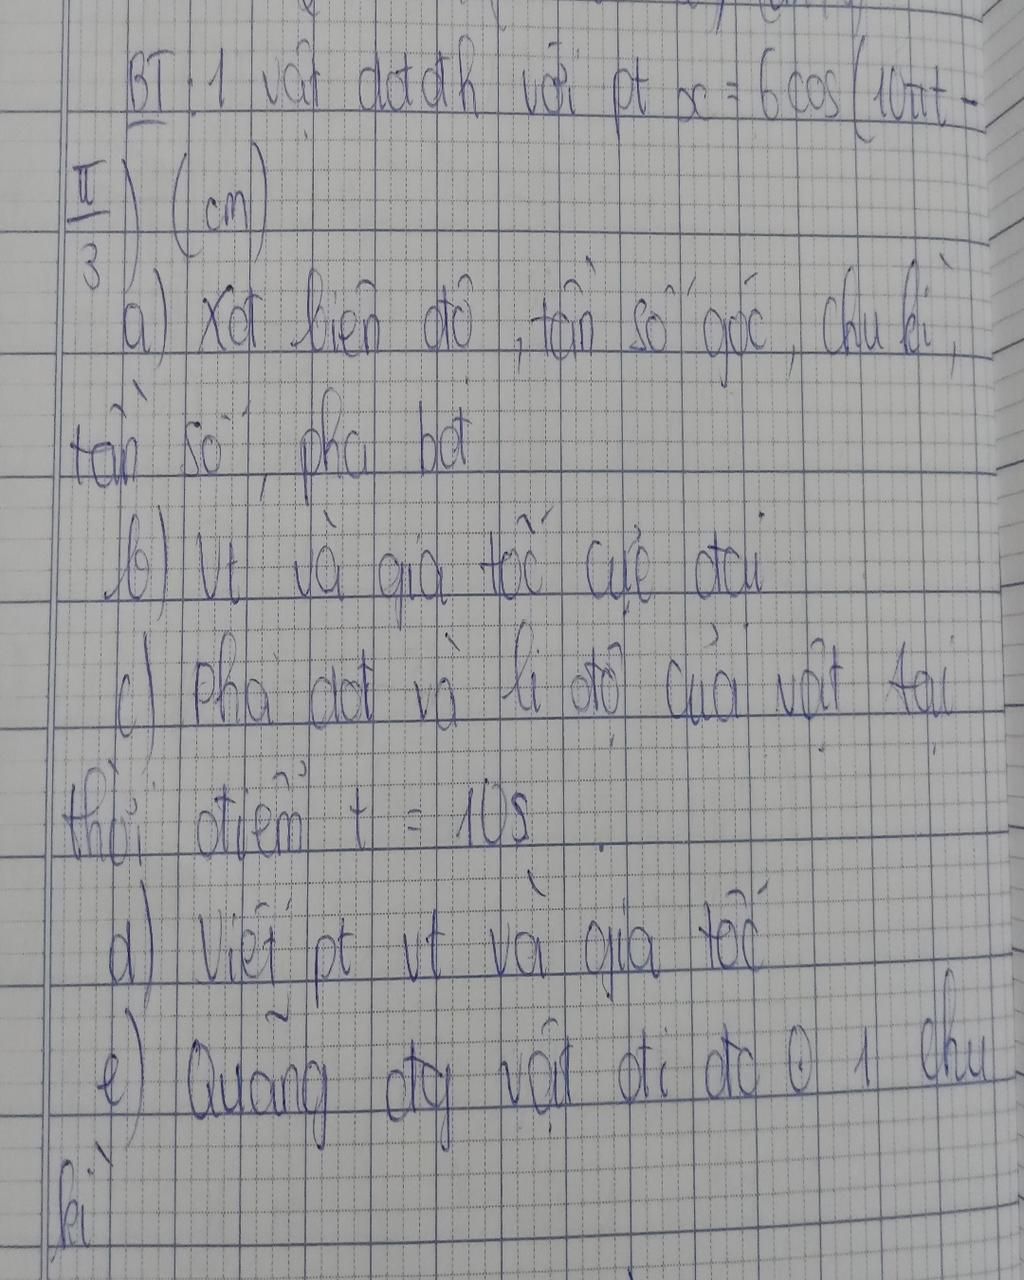 BT: 1 vật dđđh với pt x = 6 cos (10πt -
π/3) (cm)
a) Xđ biên độ, tần số góc, chu kì,
tần số, pha bđ
b) Vt và gia tốc cực đại
c) Pha dđ và li độ của vật tại
thời điểm t = 10s
d) Viết pt vt và gia tốc
e) Quãng đg vật đi đc 1 chu
kì